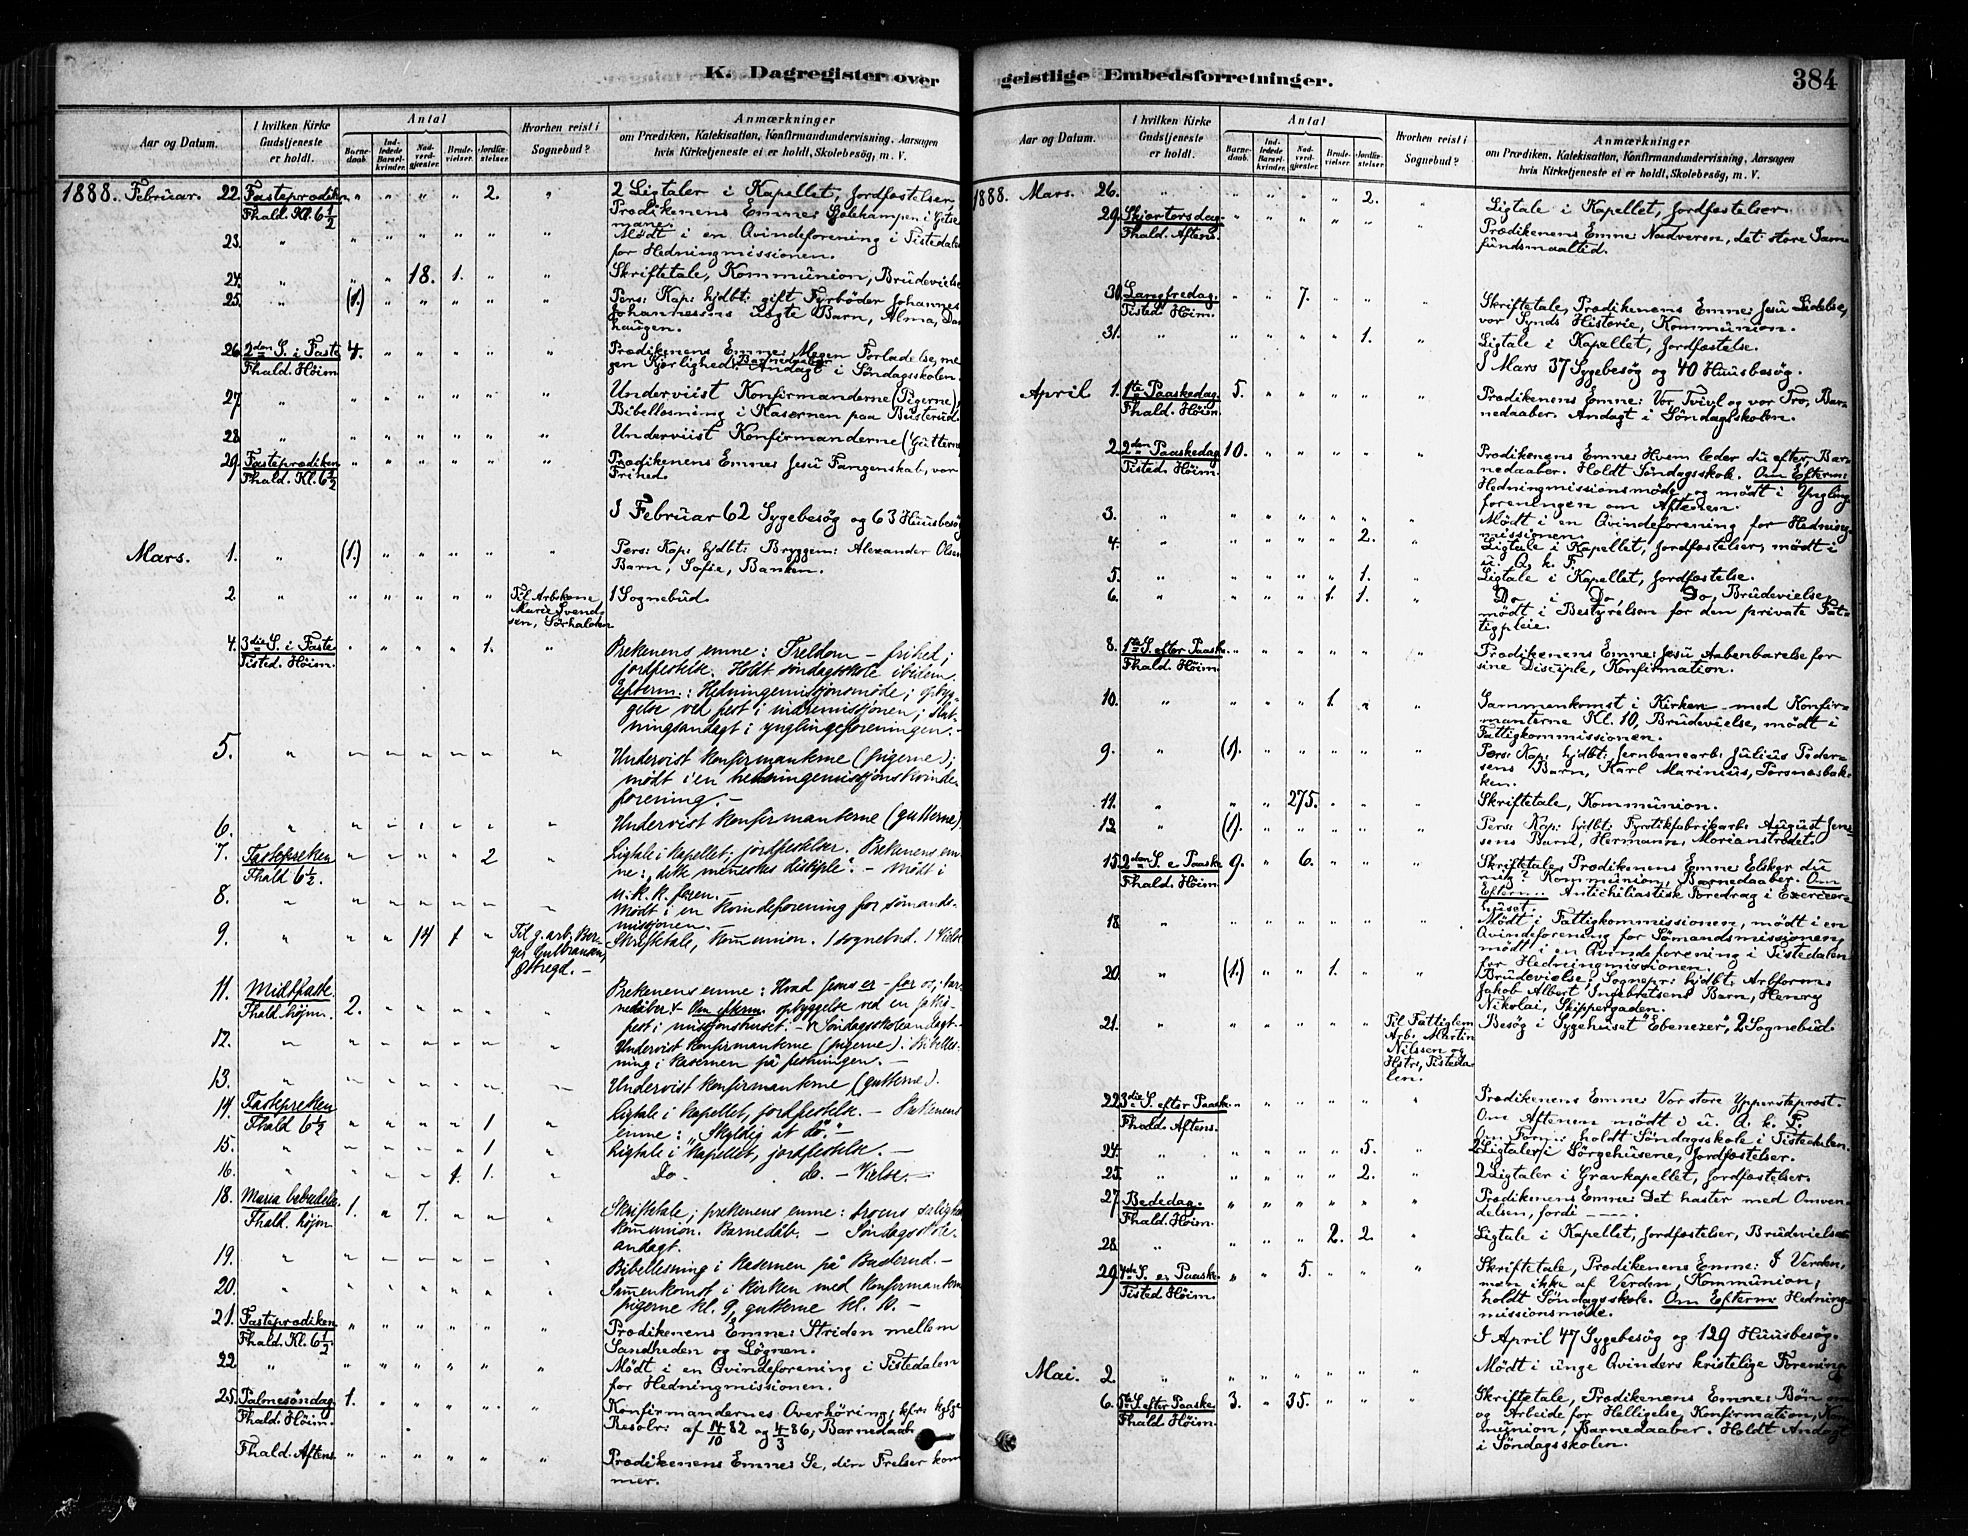 K. Dagregister over geistlige Embedsforretninger. 384
Aar og Datum.
I hvilken Kirke Gudstjeneste er holdt.
Antal
Barnedaab.
Indledede Barselkvinder.
Nadverdgjæster.
Brudevielser.
Jordfæstelser.
Hvorhen reist i Sognebud?
Anmærkninger
om Prædiken, Katekisation, Konfirmandundervisning, Aarsagen
hvis Kirketjeneste ei er holdt, Skolebesøg, m. V.
1888. Februar. 22. Fasteprædiken Fhald. Kl. 6½ " " " " 2. " 2 Ligtaler i Kapellet, Jordfæstelser.
Prædikenens Emne: Sjælekampen i Getse
mane.
23. " " " " " " " Mødt i en Qvindeforening i Tistedalen
for Hedningmissionen.
24. " " " 18. 1. " " Skriftetale, Kommünion, Brüdevielse
25. " (1.) " " " " " Pers: Kap: hjdbt: gift Fyrbøder Johannes
Johannesens Ægte Barn, Alma, Dam
haugen.
26. 2den S. i Faste Fhald. Høim. 4. " " " " " Prædikenens Emne: Megen Forladelse, me
gen Kjærlighed. Barnedaaber Andagt i Søndagsskolen.
27 " " " " " " " Underviist Konfirmanderne (Pigerne),
Bibellæsning i Kasernen paa Büsterüd.
28. " " " " " " " Underviist Konfirmanderne (Gütterne
29. Fasteprædiken Fhald. Kl. 6½ " " " " " " Prædikenens Emne: Jesü Fangenskab, vor
Frihed.
I Februar 62 Sygebesøg og 63 Huusbesøg
Mars. 1. " (1.) " " " " " Pers: Kap: hjdbt: Bryggem: Alexander Olsens
Barn, Sofie, Banken.
2 " " " " " " Til Arbskone Marie Svendsen, Sørhalden 1 Sognebüd.
4. 3die S. i Faste Tisted. Høim. " " " " 1. " Prekenens emne: Treldom – frihed;
jordfestelse. Holdt søndagsskole ibidem.
Efterm.: Hedningemissjonsmøde; opbyg-
gelse ved fest i indremissjonen; slut-
ningsandagt i ynglingeforeningen. –
5. " " " " " " " Undervist konfirmanterne (pigerne);
mødt i en hedningemissjonskvinde-
forening. –
6. " " " " " " " Undervist konfirmanterne (gutterne).
7. Fastepreken Fhald 6½. " " " " 2 " Ligtale i kapellet; jordfestelser. Prekenens em-
ne: "dette menneskes disiple". – Mødt i
u. k. k. foren. –
8. " " " " " " " Mødt i en kvindeforening for sømands-
missjonen. –
9. " " " 14 1 " Til g. arb. Berger Gulbransen, Østregd. – Skriftetale, komunion. 1 sognebud. 1 Vielse
11. Midtfaste. Fhald højm. 2. " " " " " Prekenens emne: Hvad Jesus er – for os; bar-
nedåber. Om efterm. opbyggelse ved en fattig-
fest i missjonshuset. – Søndagsskoleandagt. –
12. " " " " " " " Undervist konfirmanterne (pigerne). Bibelles-
ning i kasernen på festningen. –
13. " " " " " " " Undervist konfirmanterne (gutterne).
14. Fastepreken Fhald 6½ " " " " 1 " Ligtale i kapellet, jordfestelse. – Prekenens
emne: "Skyldig at dø". –
15. " " " " " 1 " Ligtale i kapellet, jordfestelse. –
16. " " " " 1. 1. " Do do. – Vielse. –
18. Maria bebudelse Fhald. højm 1. " 7. " " " Skriftetale; prekenens emne: troens salighed
komunion. Barnedåb. – Søndagsskole-
andagt.
19. " " " " " " " Bibellesning i kasernen på Busterud. –
20. " " " " " " " Samenkomst i kirken med konfirmanterne
pigerne kl. 9, gutterne kl. 10. –
21. Fasteprædiken Fhald. Kl. 6½ " " " " " " Prædikenens Emne: Striden mellem
Sandheden og Løgnen.
22 " " " " " " " Mødt i en Qvindeforening i Tistedalen
for Hedningmissionen.
25. Palmesøndag Fhald. Høim. 1. " " " " " Konfirmandernes Overhøring, kfr. kglge
Resolr: af 14/10 82 og 4/3 86, Barnedaab
Fhald. Aftens. " " " " " " Prædikenens Emne: Se, din Frelser kom
mer.
Aar og Datum.
I hvilken Kirke Gudstjeneste er holdt.
Antal
Barnedaab.
Indledede Barselkvinder.
Nadverdgjæster.
Brudevielser.
Jordfæstelser.
Hvorhen reist i Sognebud?
Anmærkninger
om Prædiken, Katekisation, Konfirmandundervisning, Aarsagen
hvis Kirketjeneste ei er holdt, Skolebesøg, m. V.
1888. Mars. 26. " " " " " 2. " Ligtale i Kapellet, Jordfæstelser.
29. Skjærtorsdag. Fhald. Aftens. " " " " " " Prædikenens Emne: Nadveren, det store Sam
fündsmaaltid.
30. Langfredag. Tisted. Høim. " " 7. " " " Skriftetale, Prædikenens Emne: Jesü Lidelse,
vor Synds Historie, Kommünion.
31. " " " " " 1. " Ligtale i Kapellet, Jordfæstelse.
I Mars 37 Sygebesøg og 40 Huusbesøg.
April 1. 1ste Paaskedag. Fhald. Høim. 5. " " " " " Prædikenens Emne: Vor Tvivl og vor Tro, Bar-
nedaaber. Andagt i Søndagsskolen.
2. 2den Paaskedag Tisted. Høim. 10. " " " " " Prædikenens Emne: Hvem leder dü efter. Bar-
nedaaber. Holdt Søndagsskole. Om Efterm:
Hedningmissionsmøde, og mødt i Yngling
foreningen om Aftenen.
3. " " " " " " " Mødt i en Qvindeforening for Hedning-
missionen.
4. " " " " " 2. " Ligtale i Kapellet, Jordfæstelser, mødt i
u. Q. k. F.
5. " " " " " 1. " Ligtale i Kapellet, Jordfæstelse.
6. " " " " 1. 1. " Do i Do, Do, Brüdevielse,
mødt i Bestyrelsen for den private Fat-
tigpleie.
8. 1ste S. efter Paaske. Fhald. Høim. " " " " " " Prædikenens Emne: Jesü Aabenbarelse for
sine Disciple, Konfirmation.
10. " " " " 1. " " Sammenkomst i Kirken med Konfir-
manterne Kl. 10, Brüdevielse, mødt i
Fattigkommissionen.
9. " (1). " " " " " Pers: Kap: hjdbt: Jernbanearb: Jülius Peder-
sens Barn, Karl Marinius, Torsnæsbak-
ken.
11. " " " 275. " " " Skriftetale, Kommünion.
12. " (1). " " " " " Pers: Kap: hjdbt: Fyrstikfabrikarb: Aügüst Jen-
sens Barn, Hermann, Morianstrødet.
15. 2den S. e. Paaske Fhald. Høim. 9. " 6. " " " Skriftetale, Prædikenens Emne: Elsker dü
mig? Kommünion, Barnedaaber. Om
Efterm: Antichiliastisk Foredrag i Exerceer-
hüset.
18 " " " " " " " Mødt i Fattigkommissionen, mødt i en
Qvindeforening for Sømandsmissionen,
mødt i en Qvindeforening i Tistedalen
for Hedningmissionen.
20. " (1.) " " 1. " " Brüdevielse, Sognepr: hjdbt: Arbform.
Jakob Albert Ingebretsens Barn, Henry
Nikolai, Skippergaden.
21. " " " " " " Til Fattiglem Arb: Martin Nilssen og Hstr., Tistedalen. Besøg i Sygehüset "Ebenezer", 2 Sognebüd.
22. 3die S. efter Paaske. Fhald. Aftens. " " " " " " Prædikenens Emne: Vor store Ypperstepræst.
Om Aftenen mødt i u. Q. k. F.
Om Form: holdt Søndagsskole i Tistedalen.
24. " " " " " 5. " 2 Ligtaler i Sørgehusene, Jordfæstelser.
25. " " " " " 2. " 2 Ligtaler i Gravkapellet, Jordfæstelser.
27 Bededag. Fhald. Høim. " " " " " " Prædikenens Emne: Det haster med Omven-
delsen, fordi – – – –.
28. " " " " 2. 2. " Ligtale i Kapellet, Jordfæstelser, Brüdevielser
29. 4de S. e. Paaske. Tisted. Høim. " " 5. " " " Skriftetale, Prædikenens Emne: I Verden,
men ikke af Verden, Kommünion,
holdt Søndagsskole. Om Efterm: Hedning-
missionsmøde.
I April 47 Sygebesøg og 129 Huusbesøg.
Mai. 2. " " " " " " " Mødt i ünge Qvinders kristelige Forening
6. 5te S. efter Paaske Fhald Høim. 3. " 35. " " " Skriftetale, Prædikenens Emne: Bøn om
og Arbeide for Helligelse, Konfirmation, Kom
münion, Barnedaaber. Holdt Andagt
i Søndagsskolen.